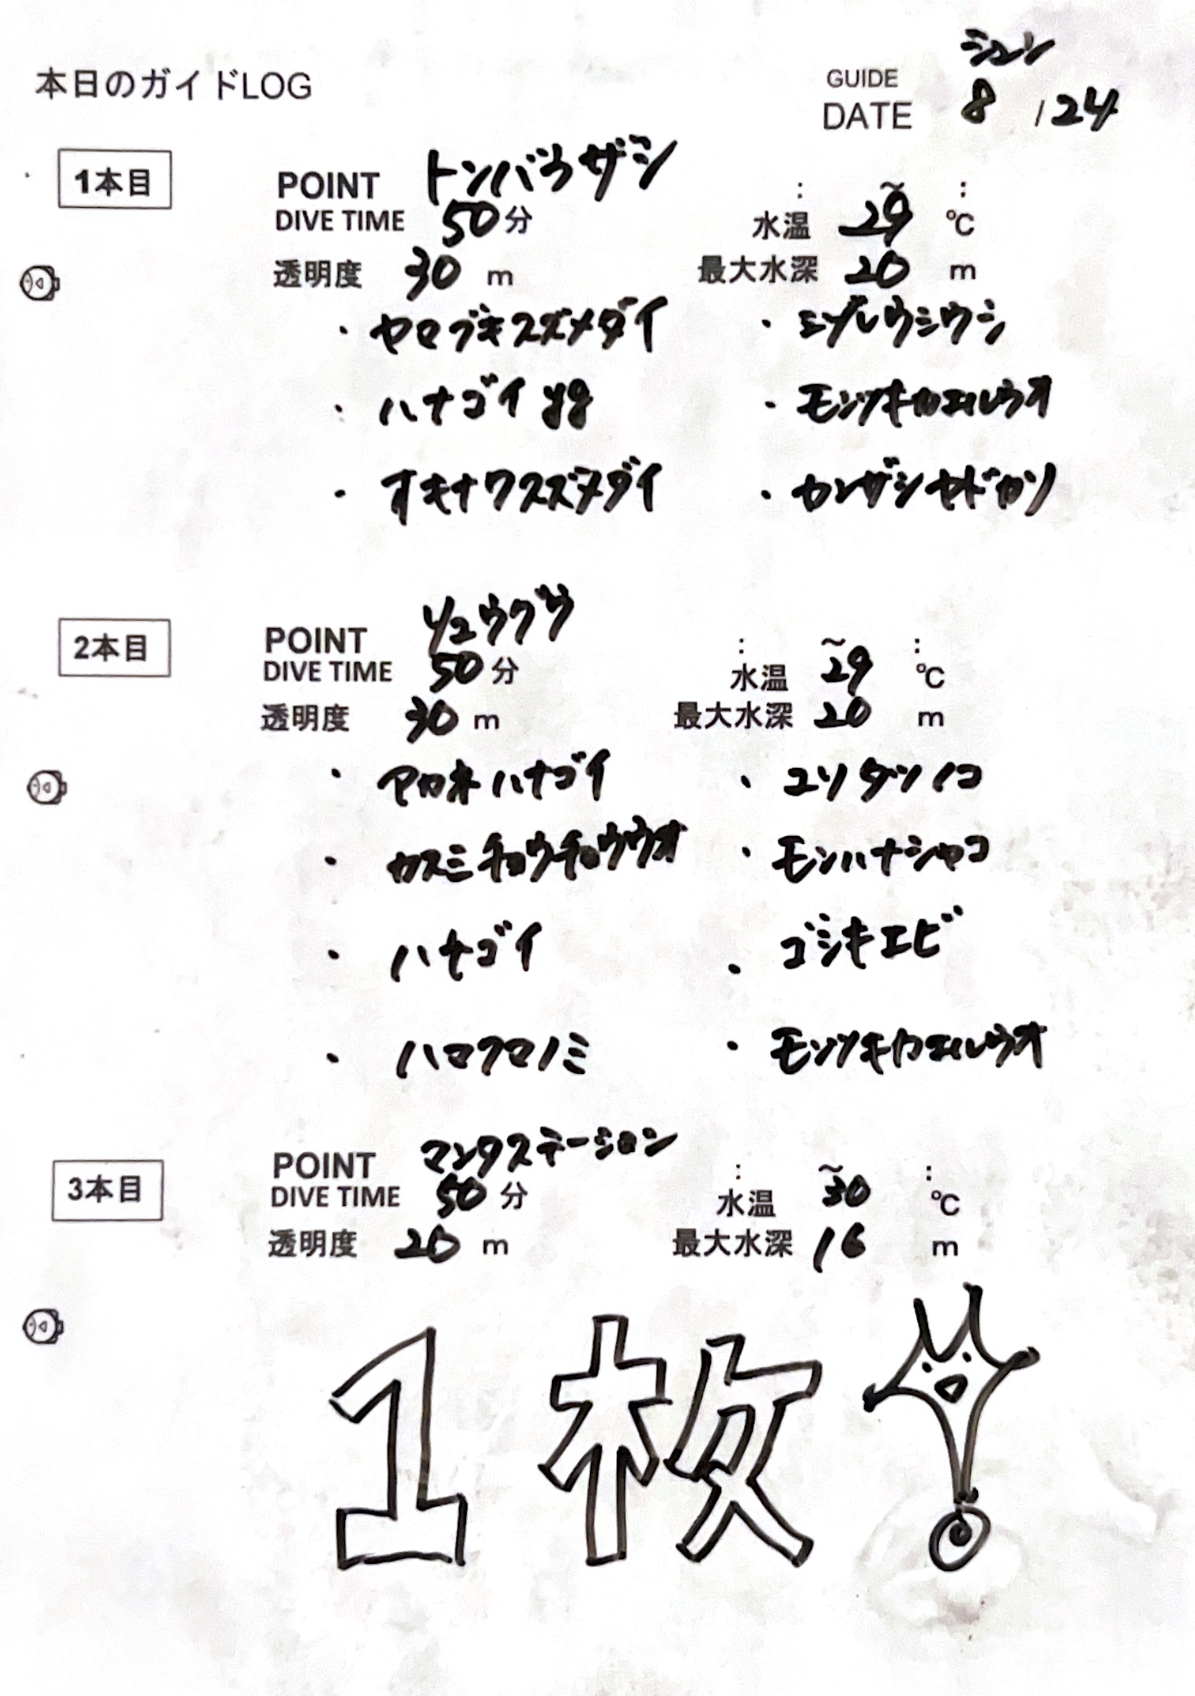 本日のガイドLOG
GUIDE ジュン
DATE 8 / 24
1本目
POINT トンバラザシ
: ～ :
DIVE TIME 50 分 水温 29 ℃
透明度 30 m 最大水深 20 m
・ヤマブキスズメダイ ・ミゾレウミウシ
・ハナゴイ yg ・モンツキカエルウオ
・オキナワスズメダイ ・カンザシヤドカリ
2本目
POINT リュウグウ
: ～ :
DIVE TIME 50 分 水温 29 ℃
透明度 30 m 最大水深 20 m
・アカネハナゴイ
・カスミチョウチョウウオ ・モンハナシャコ
・ハナゴイ ・ゴシキエビ
・ハマクマノミ ・モンツキカエルウオ
3本目
POINT マンタステーション
: ～ :
DIVE TIME 50 分 水温 30 ℃
透明度 20 m 最大水深 16 m
1枚!